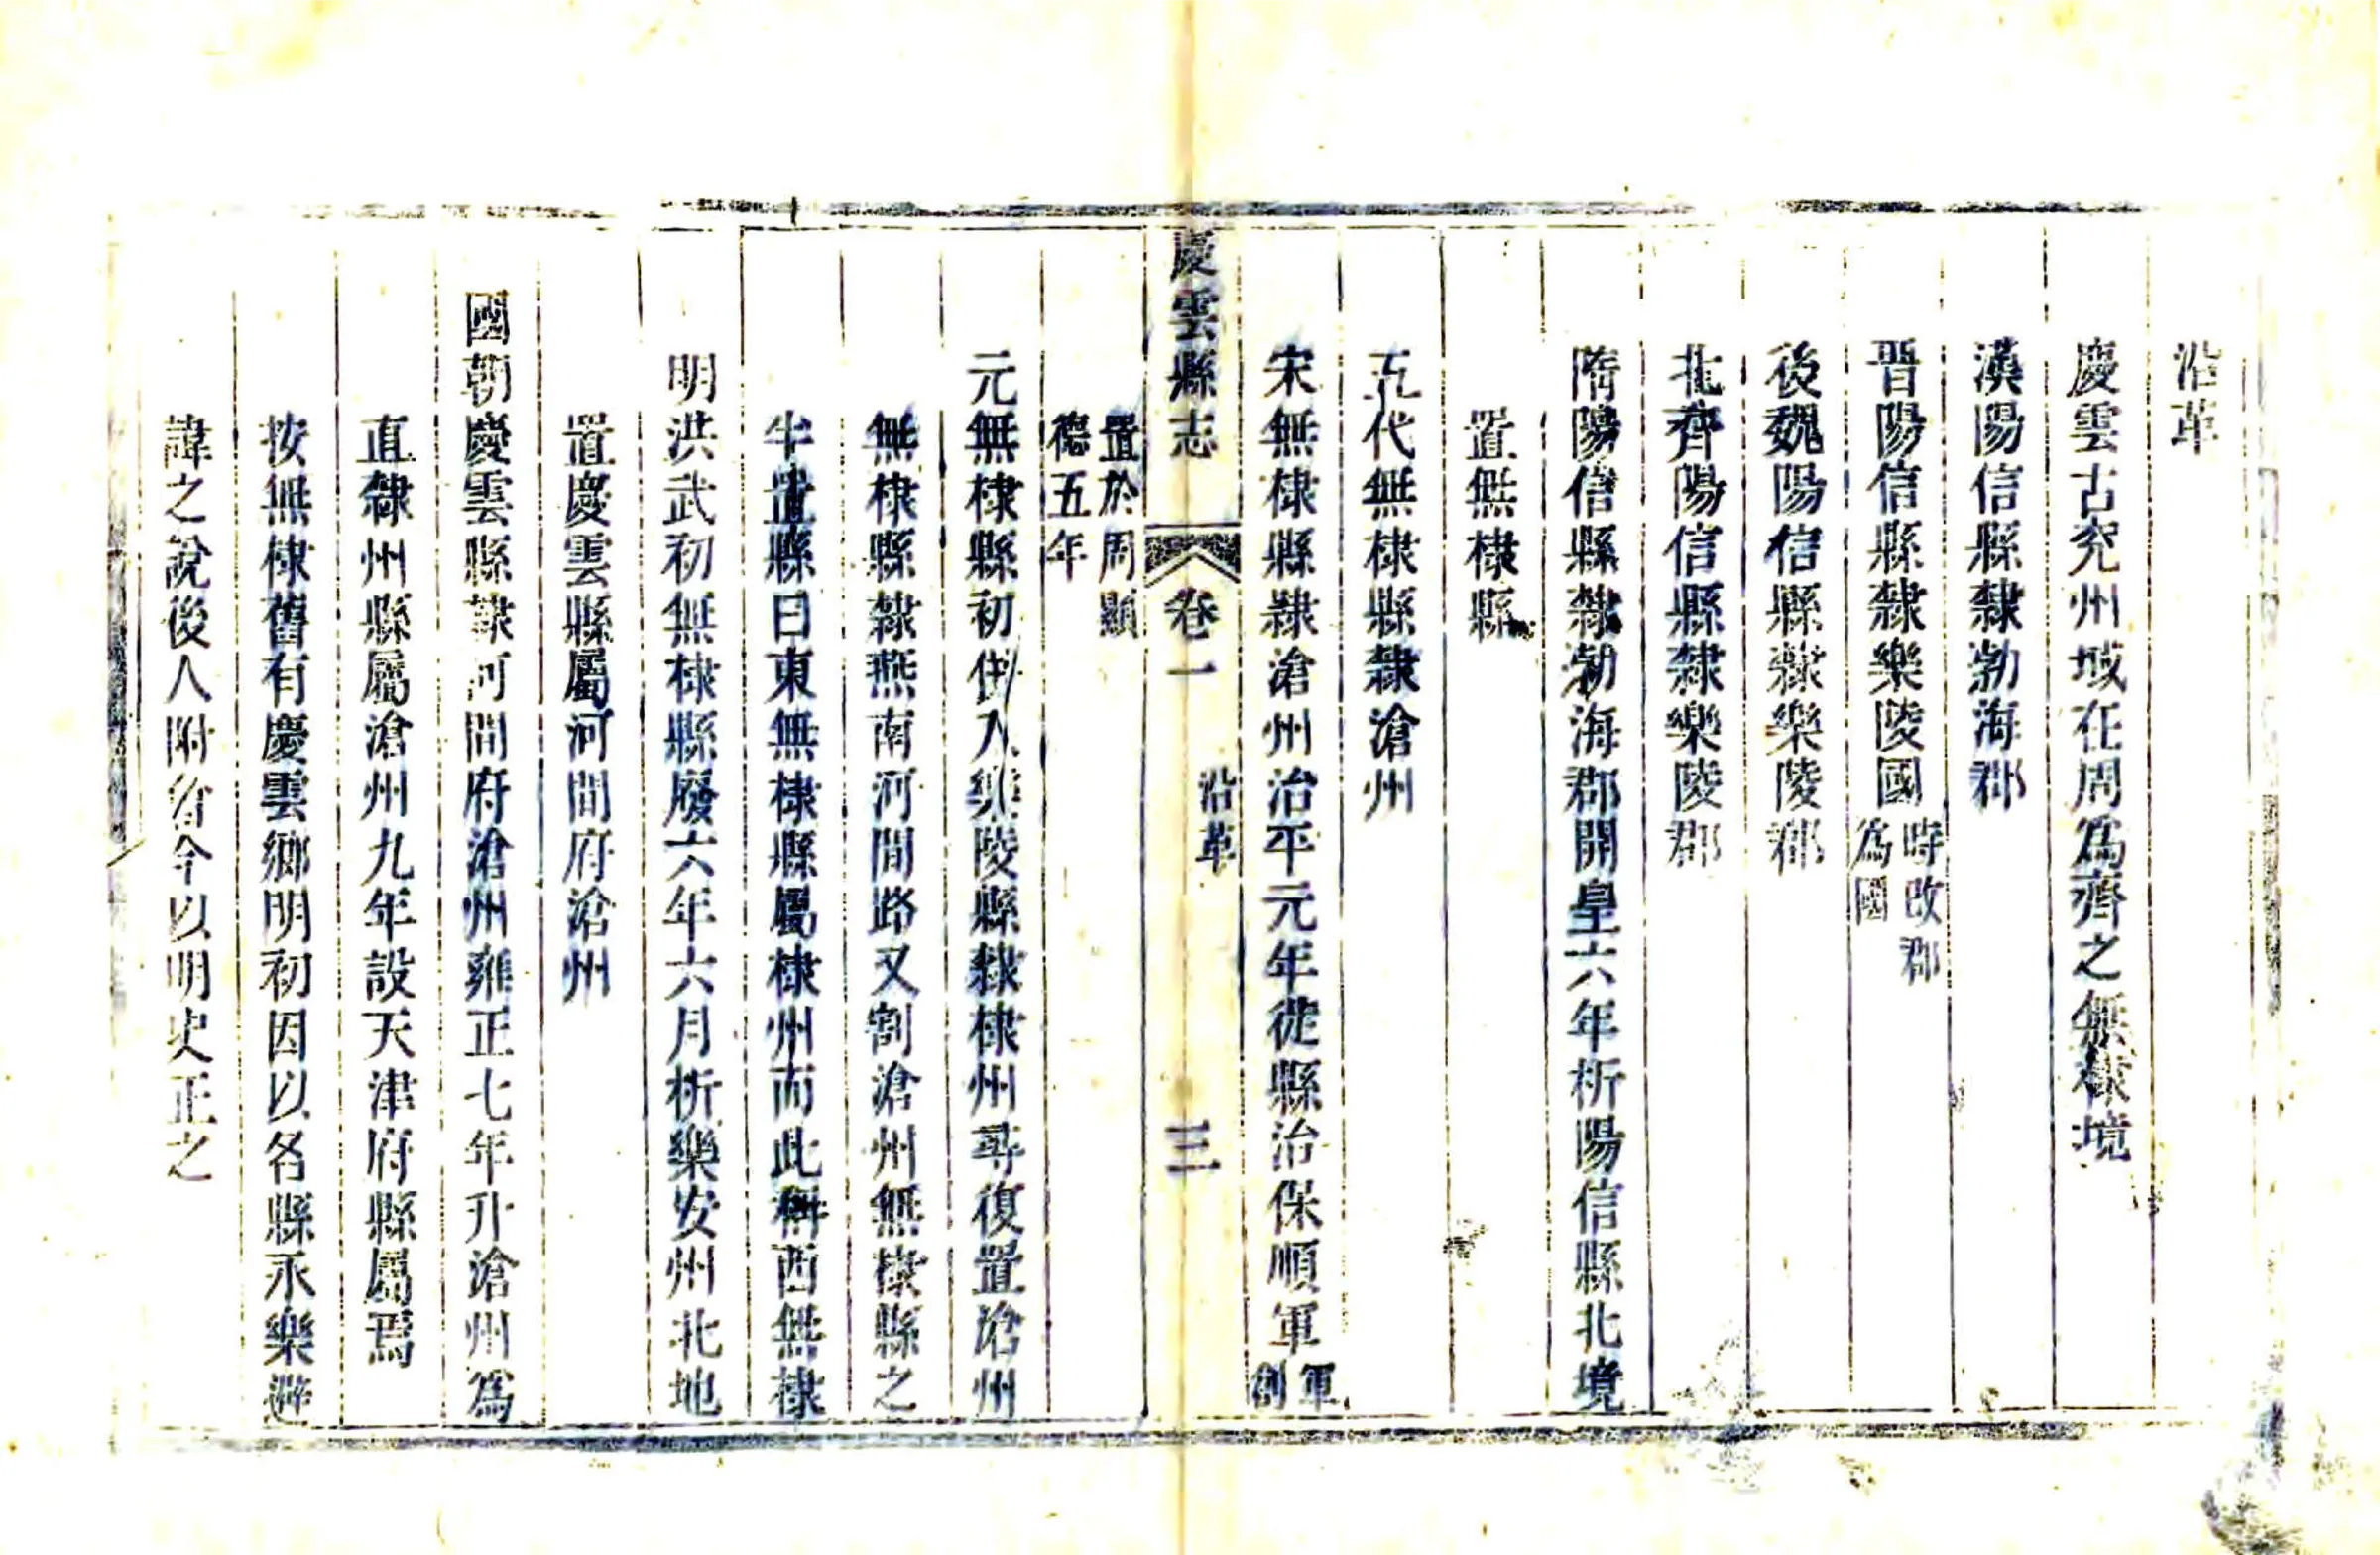 沿革
慶雲古兖州域在周爲齊之無棣境
漢陽信縣隸勃海郡
晋陽信縣隸樂陵國時改郡爲國
後魏陽信縣隸樂陵郡
北齊陽信縣隸樂陵郡
隋陽信縣隸勃海郡開皇六年析陽信縣北境
置無棣縣
五代無棣縣隸滄州
宋無棣縣隸滄州治平元年徙縣治保順軍軍創
慶雲縣志 卷一 沿革 三
置於周顯德五年
元無棣縣初併入樂陵縣隸棣州尋復置滄州
無棣縣隸燕南河間路又割滄州無棣縣之
半置縣曰東無棣縣屬棣州而此稱西無棣
明洪武初無棣縣廢六年六月析樂安州北地
置慶雲縣屬河間府滄州
國朝慶雲縣隸河間府滄州雍正七年升滄州爲
直隸州縣屬滄州九年設天津府縣屬焉
按無棣舊有慶雲鄉明初因以名縣永樂避
諱之說後人附會今以明史正之